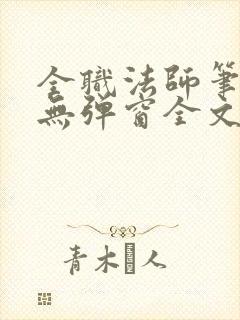 全職法師筆
無彈窗全文
青木人